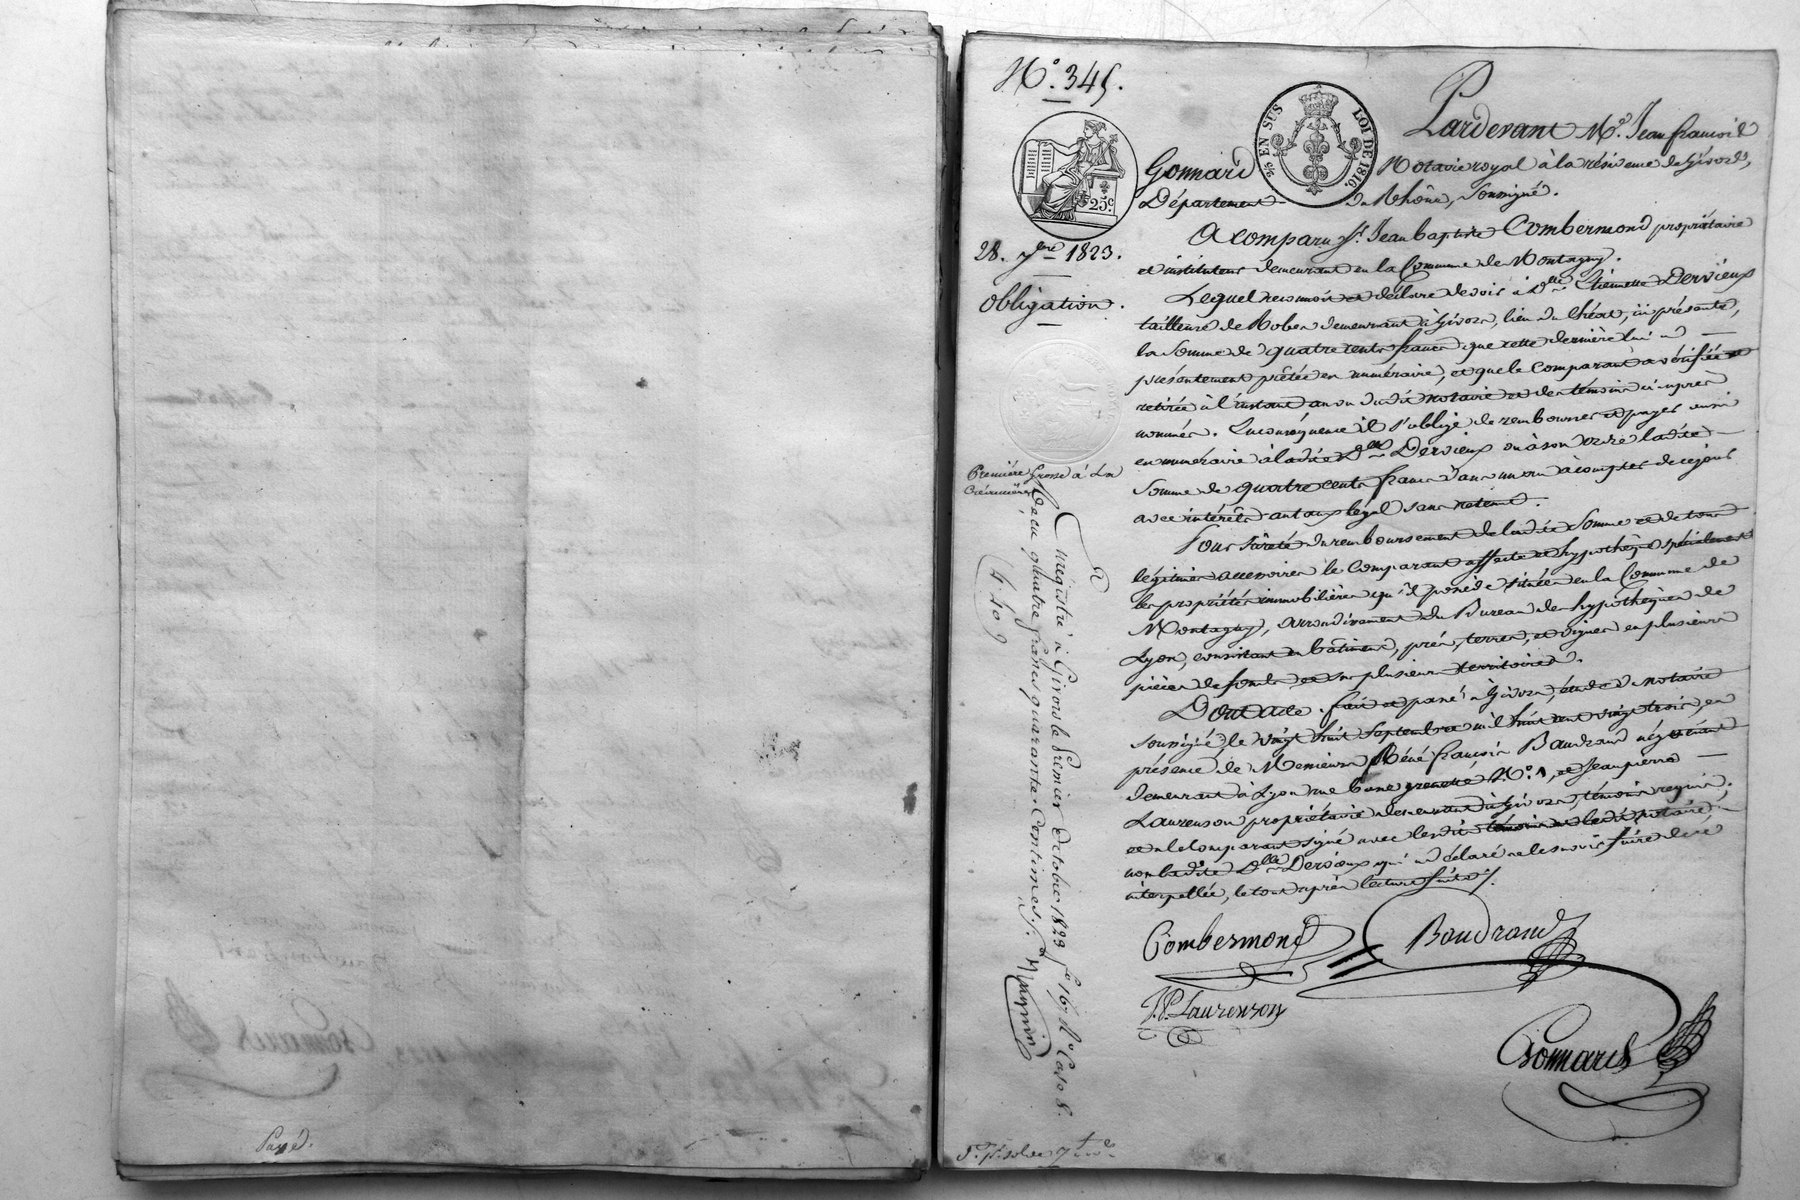 Payé.
N.º 345.
EN SUS
LOI DE 1816.
25.c
28. 7bre 1823.
Obligation.
Première Grosse à la
Créancière
Enregistré à Givors le premier octobre 1823 fo 167 Ro Case 8.
Reçu quatre francs quarante centimes.
4.40
Pardevant Me. Jean françois
Gonnard Notaire royal à la résidence de Givors,
Département du Rhône, Soussigné.
A comparu Sr. Jean baptiste Combermond propriétaire
et instituteur demeurant en la Commune de Montagny.
Lequel reconnoit et déclare devoir à Dlle Etiennette Dervieux
tailleuse de Robes demeurant à Givors, lieu du Chéat, ici présente,
la Somme de quatre cents francs que cette dernière lui a
présentement prêtée en numéraire, et que le Comparant a vérifiée et
retirée à l'instant au vu dudit notaire et des témoins ci-après
nommés. En conséquence il s'oblige de rembourser et payer aussi
en numéraire à ladite Dlle Dervieux ou à son ordre ladite
Somme de quatre cents francs dans un an à compter de ce jour
avec intérêts au taux légal sans retenue.
Pour Sûreté du remboursement de ladite Somme et de tous
légitimes accessoires le Comparant affecte et hypothèque spécialement
les propriétés immobilières qu'il possède situées en la Commune de
Montagny, arrondissement du Bureau des hypothèques de
Lyon, consistant en bâtiments, prés, terres, et vignes en plusieurs
pièces de fonds et sur plusieurs territoires.
Dont acte. fait et passé à Givors, étude du notaire
soussigné, le vingt huit Septembre mil huit cent vingt trois, en
présence de Messieurs Réné françois Baudrand négociant
demeurant à Lyon rue bonne grenette No. 1, et Jean pierre
Laurenson propriétaire demeurant à Givors, témoins requis.
et a le Comparant signé avec lesdits témoins et ledit notaire,
non ladite Dlle Dervieux qui a déclaré ne le savoir faire de ce
interpellée, le tout après lecture faite.
Combermond Baudrand
J.P. Laurenson
Gonnard